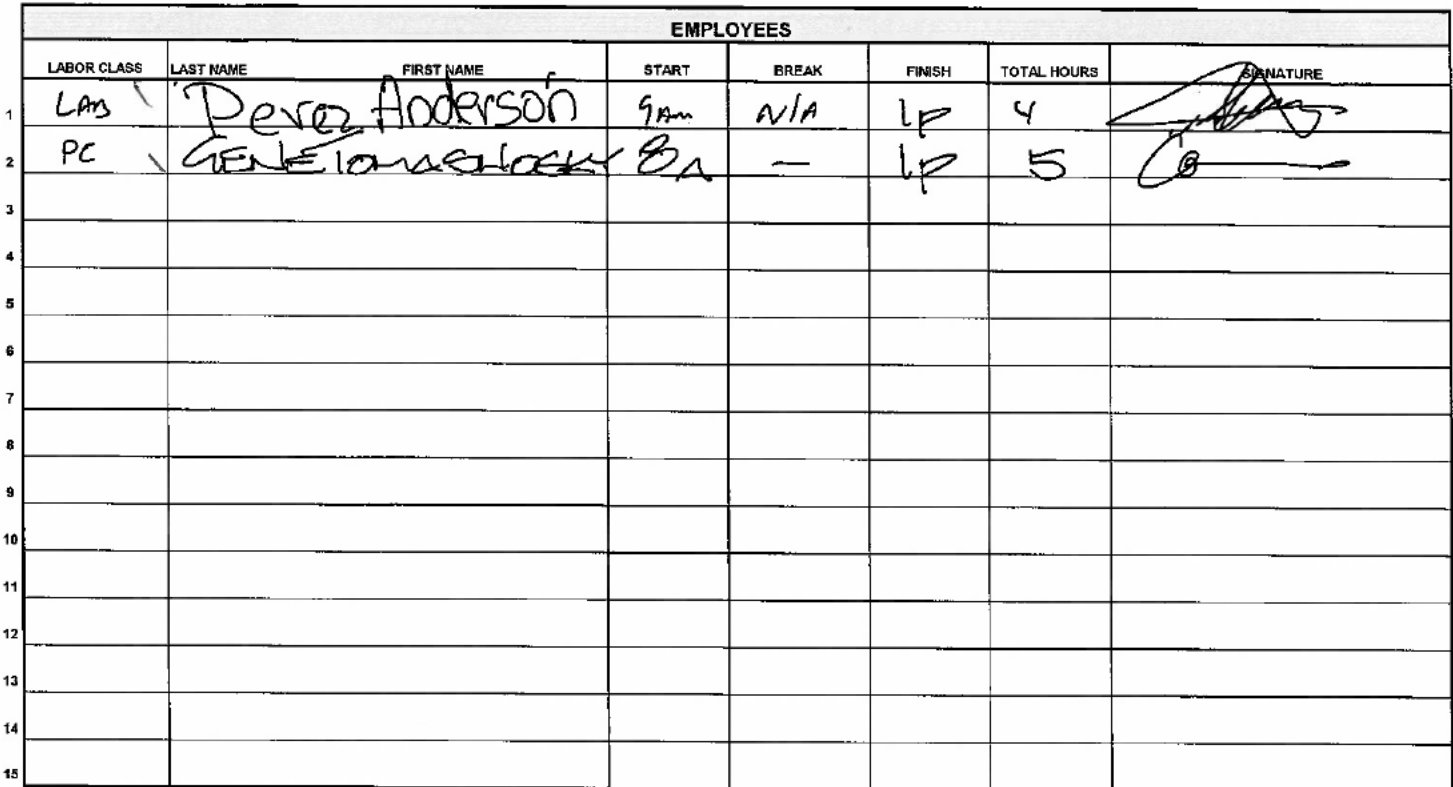 EMPLOYEES
LABOR CLASS LAST NAME FIRST NAME START BREAK FINISH TOTAL HOURS SIGNATURE
1 LAB Perez Anderson 9Am N/A 1P 4
2 PC GENE TOMASHOSKY 8A — 1P 5
3
4
5
6
7
8
9
10
11
12
13
14
15